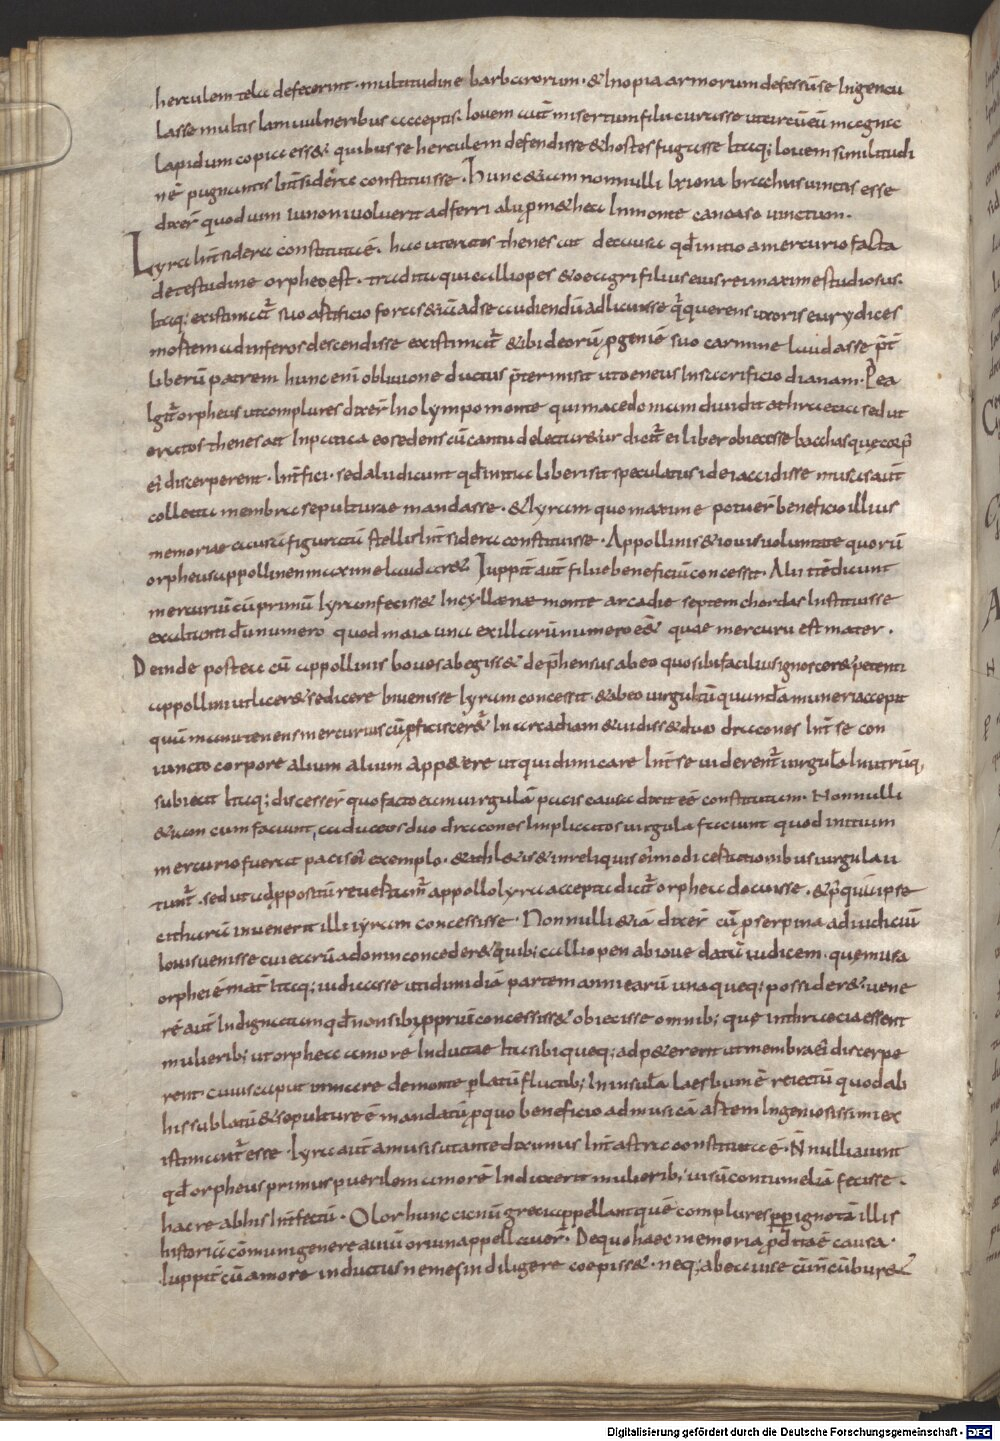 herculem tela defecerint· multitudine barbarorum· & Inopia armorum defessū se Ingenua
lasse multis lam vulneribus acceptis· Iovem aut̄ misertum filii curasse ut circū eū magna
lapidum copia ess&· quibus se herculem defendisse & hostes fugasse Itaq; Iovem similitudi
nē pugnantis Int̄ sidera constituisse· Hunc &iam nonnulli Ixiona brachiis vinctis esse
dixer̄ quod vim Iunoni voluerit adferri alii pm&hea In monte caucaso vinctum·
Lyra Int̄ sidera constituta ē· hac ut eratos thenes ait de causa qđ initio a mercurio facta
de testudine orpheo est· tradita qui calliopes & oeagri filius eius rei maxime studiosus·
Itaq; existimat̄ suo artificio feras &iā ad se audiendū adlicuisse q̄ querens uxoris eurydices
mortem ad inferos descendisse existimat̄ & ibi deorū p̱geniē suo carmine laudasse p̄t̄
liberū patrem hunc eni oblivione ductus p̄termisit ut oeneus In sacrificio dianam· Pea
Igit̄ orpheus ut complures dixer̄ In olympo monte qui macedoniam dividit a thraecia sed ut
eratos thenes ait In patica eo sedens cū cantu delectar&ur dicit̄ ei liber obiecisse bacchas que corp̄
ei discerperent· Int̄fici· sed alii dicunt qđ initia liberi sit speculatus id ei accidisse musis aut̄
collecta membra sepulturae mandasse· & lyram quo maxime potuer̄ beneficio illius
memoriae causa figuratā stellis Int̄ sidera constituisse· Appollinis & iovis voluntate quorū
orpheus appollinen maxime laudar&· Iuppit̄ aut̄ filiae beneficiū concessit· Alii tē dicunt
mercuriū cū primū lyram feciss& In cyllenae monte arcadie septem chordas Instituisse
ex atlanti dū numero quod maia una ex illarū numero e&̄ quae mercurii est mater·
Deinde postea cū appollinis boves abegiss& dep̄hensus ab eo quo sibi facilius ignoscer& petenti
appollini ut licer& se dicere Invenisse lyram concessit & ab eo virgulā quandā muneri accepit
quū manu tenens mercurius cū p̱ficiscer&̄ In arcadiam & vidiss& duo dracones Int̄ se con
iuncto corpore alium alium app&ere ut qui dimicare Int̄ se viderent̄ virgulā Inutriq̄;
subiecit Itaq; discesser̄ quo facto eam virgulā pacis causa dixit eē constitutam· Nonnulli
&iam cum faciunt, caduceos duo dracones Implicatos virgula faciunt quod initium
mercurio fuerat pacis ei exemplo· & athl&is & in reliquis ei modi certationibus virgula u
tunt̄· sed ut ad p̱positū revertam̄ appollo lyra accepta dicit̄ orphea docuisse· & p̄quā ipse
citharā invenerit illi lyram concessisse· Nonnulli &iā dixer̄ cū p̱serpina ad iudiciū
Iovis venisse cui eccrū adonin conceder& quib; calliopen ab iove datū iudicem· que musa
orphei ē mat̄ Itaq; iudicasse uti dimidiā partem anni earū unaqueq; possider&· vene
rē aut̄ Indignatam qđ non sibi p̱prium concessiss& obiecisse omnib; que in thraecia essent
mulierib; ut orphea amore Inductae Ita sibi queq; adp&erent ut membra ei discerpe
rent cuius caput in mare de monte p̱latū fluctib; In insulā laesbum ē reiectū quod ab
his sublatū & sepulture ē mandatū p̱ quo beneficio ad musicā artem Ingeniosissimi ex
istimant̄ esse· lyra aut̄ a musis ut ante diximus Int̄ astra constituta ē· N̄nulli aiunt
qđ orpheus primus puerilem amorē Induxerit mulierib; visū contumeliā fecisse·
hac re ab his Int̄fectū· Olor hunc cicnū greci appellant quē complures p̱p̱ ignotā illis
historiā cōmuni genere aviū orvin appellaver̄· De quo haec memoriap̄dita ē causa·
Iuppit̄ cū amore inductus nemesin diligere coepiss&· neq; ab ea ut se cū n̄ cūbar&
Digitalisierung gefördert durch die Deutsche Forschungsgemeinschaft - DFG